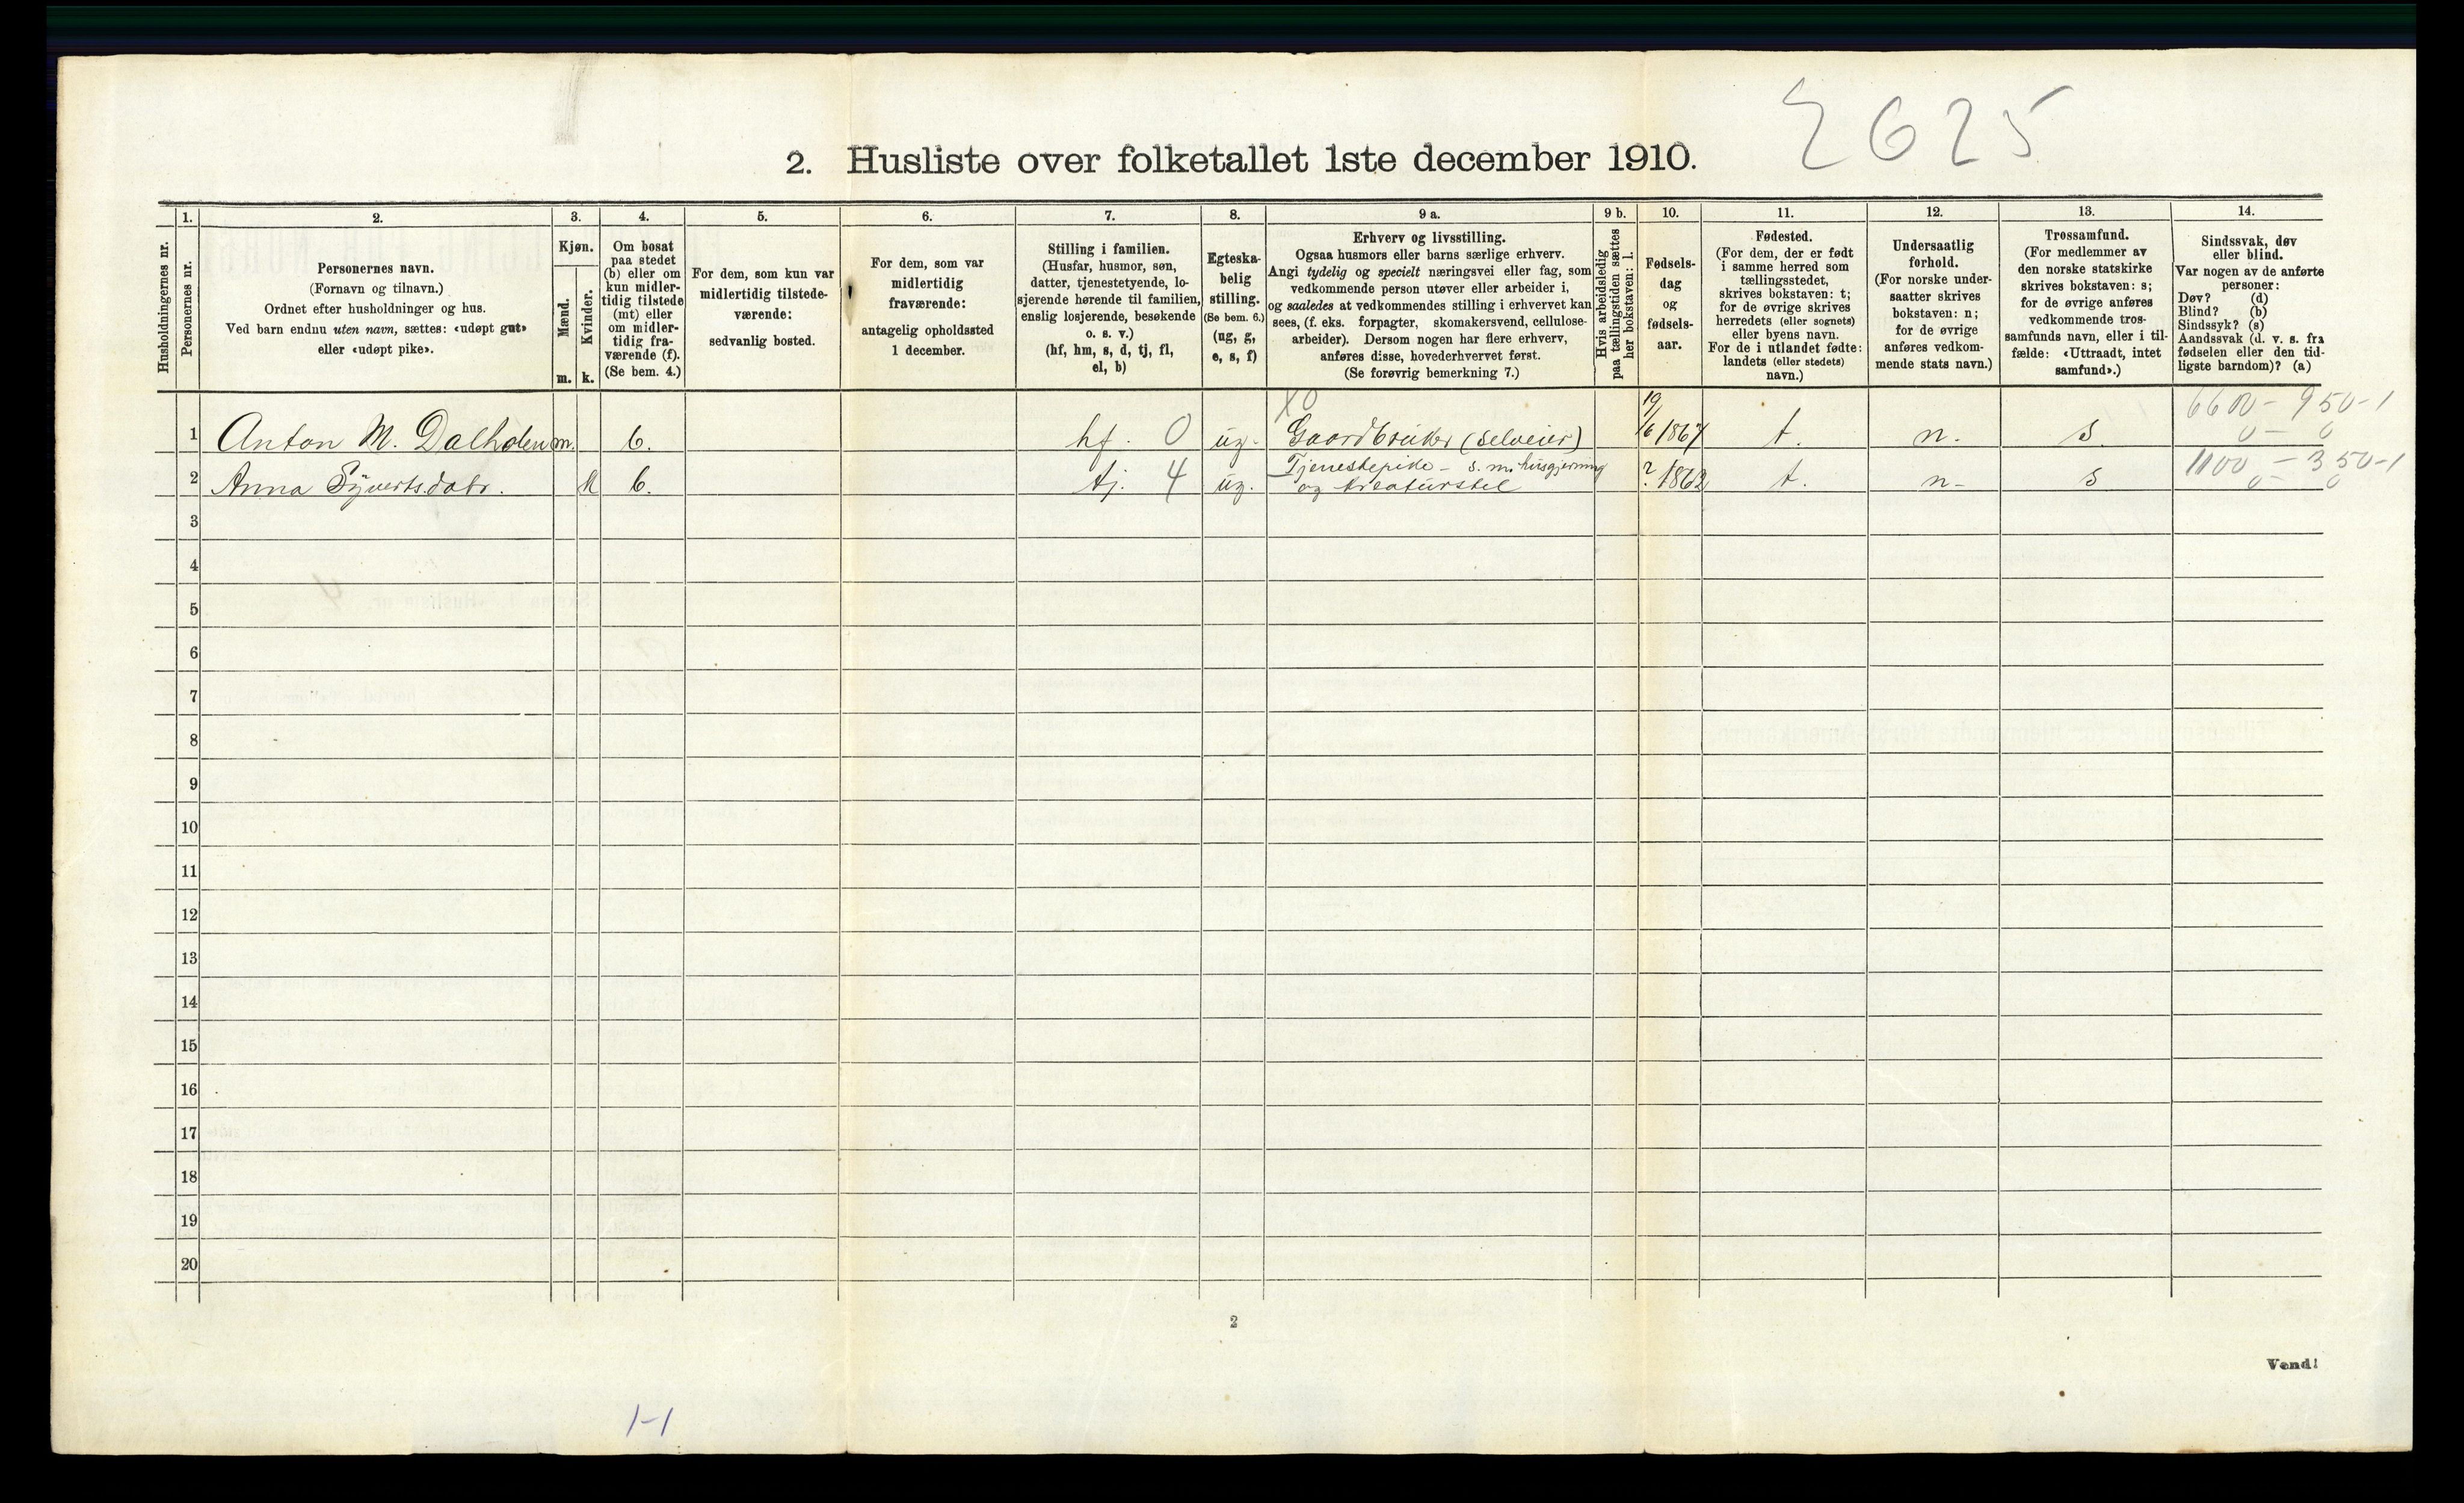 2625
2. Husliste over folketallet 1ste december 1910.
Husholdningernes nr.
1.
Personernes nr.
2.
Personernes navn.
(Fornavn og tilnavn.)
Ordnet efter husholdninger og hus.
Ved barn endnu uten navn, sættes: «udøpt gut»
eller «udøpt pike».
3.
Kjøn.
Mænd.
Kvinder.
m. k.
4.
Om bosat
paa stedet
(b) eller om
kun midler-
tidig tilstede
(mt) eller
om midler-
tidig fra-
værende (f).
(Se bem. 4.)
5.
For dem, som kun var
midlertidig tilstede-
værende:
sedvanlig bosted.
6.
For dem, som var
midlertidig
fraværende:
antagelig opholdssted
1 december.
7.
Stilling i familien.
(Husfar, husmor, søn,
datter, tjenestetyende, lo-
sjerende hørende til familien,
enslig losjerende, besøkende
o. s. v.)
(hf, hm, s, d, tj, fl,
el, b)
8.
Egteska-
belig
stilling.
(Se bem. 6.)
(ug, g,
e, s, f)
9 a.
Erhverv og livsstilling.
Ogsaa husmors eller barns særlige erhverv.
Angi tydelig og specielt næringsvei eller fag, som
vedkommende person utøver eller arbeider i,
og saaledes at vedkommendes stilling i erhvervet kan
sees, (f. eks. forpagter, skomakersvend, cellulose-
arbeider). Dersom nogen har flere erhverv,
anføres disse, hovederhvervet først.
(Se forøvrig bemerkning 7.)
9 b.
Hvis arbeidsledig
paa tællingstiden sættes
her bokstaven: l.
10.
Fødsels-
dag
og
fødsels-
aar.
11.
Fødested.
(For dem, der er født
i samme herred som
tællingsstedet,
skrives bokstaven: t;
for de øvrige skrives
herredets (eller sognets)
eller byens navn.
For de i utlandet fødte:
landets (eller stedets)
navn.)
12.
Undersaatlig
forhold.
(For norske under-
saatter skrives
bokstaven: n;
for de øvrige
anføres vedkom-
mende stats navn.)
13.
Trossamfund.
(For medlemmer av
den norske statskirke
skrives bokstaven: s;
for de øvrige anføres
vedkommende tros-
samfunds navn, eller i til-
fælde: «Uttraadt, intet
samfund».)
14.
Sindssvak, døv
eller blind.
Var nogen av de anførte
personer:
Døv? (d)
Blind? (b)
Sindssyk? (s)
Aandssvak (d. v. s. fra
fødselen eller den tid-
ligste barndom)? (a)
X0 6600 - 950-1
1 Anton M. Dalholen m. b. hf. 0 ug. Gaardbruker (selveier) 19/6 1867 t. n. s. 0 - 0
2 Anna Syvertsdatr. k b. tj. 4 ug. Tjenestepike - s. m. husgjerning ? 1862 t. n- s 1100 - 350-1
og kreaturstel 0 - 0
3
4
5
6
7
8
9
10
11
12
13
14
15
16
17
18
19
20
2
Vend!
1-1